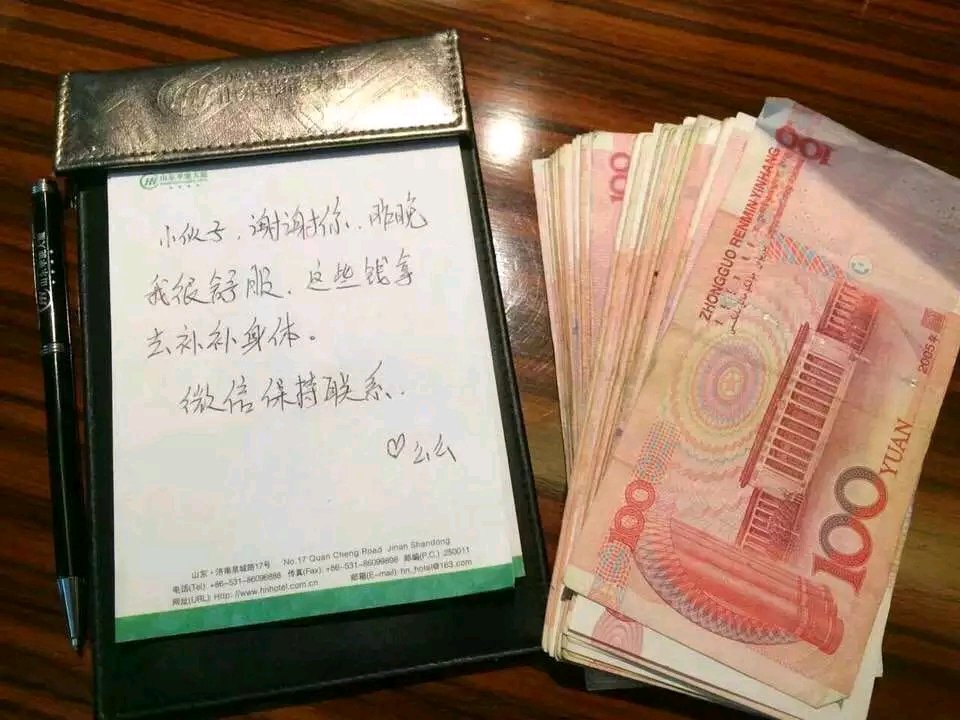 小伙子，谢谢你，昨晚
我很舒服，这些钱拿
去补补身体。
微信保持联系.
♡么么
山东·济南泉城路17号 No.17 Quan Cheng Road Jinan Shandong
电话(Tel): +86-531-86096888 传真(Fax): +86-531-86099898 邮编(P.C.) 250011
网址(URL): Http://www.hnhotel.com.cn 邮箱(E-mail): hn_hotel@163.com
100
100
ZHONGGUO RENMIN YINHANG
2005年
100
100
YUAN